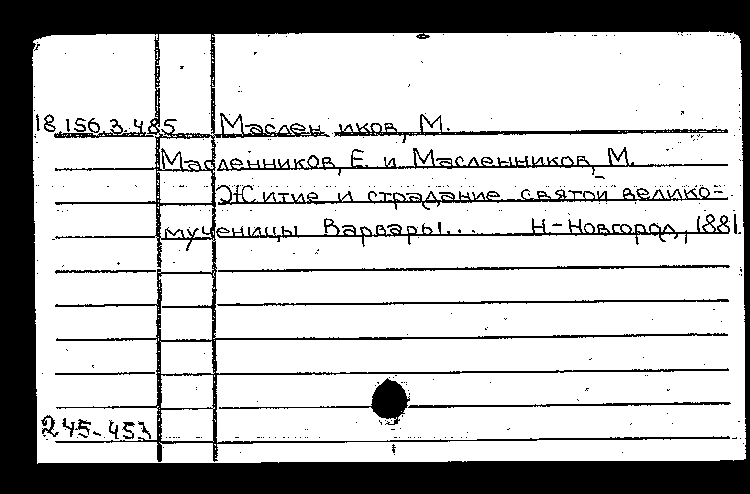 18.156.3.485 Маслен иков, М.
Масленников, Е. и Масленников, М.
Житие и страдание святой велико=
мученицы Варвары... Н-Новгород, 1881.
245-453